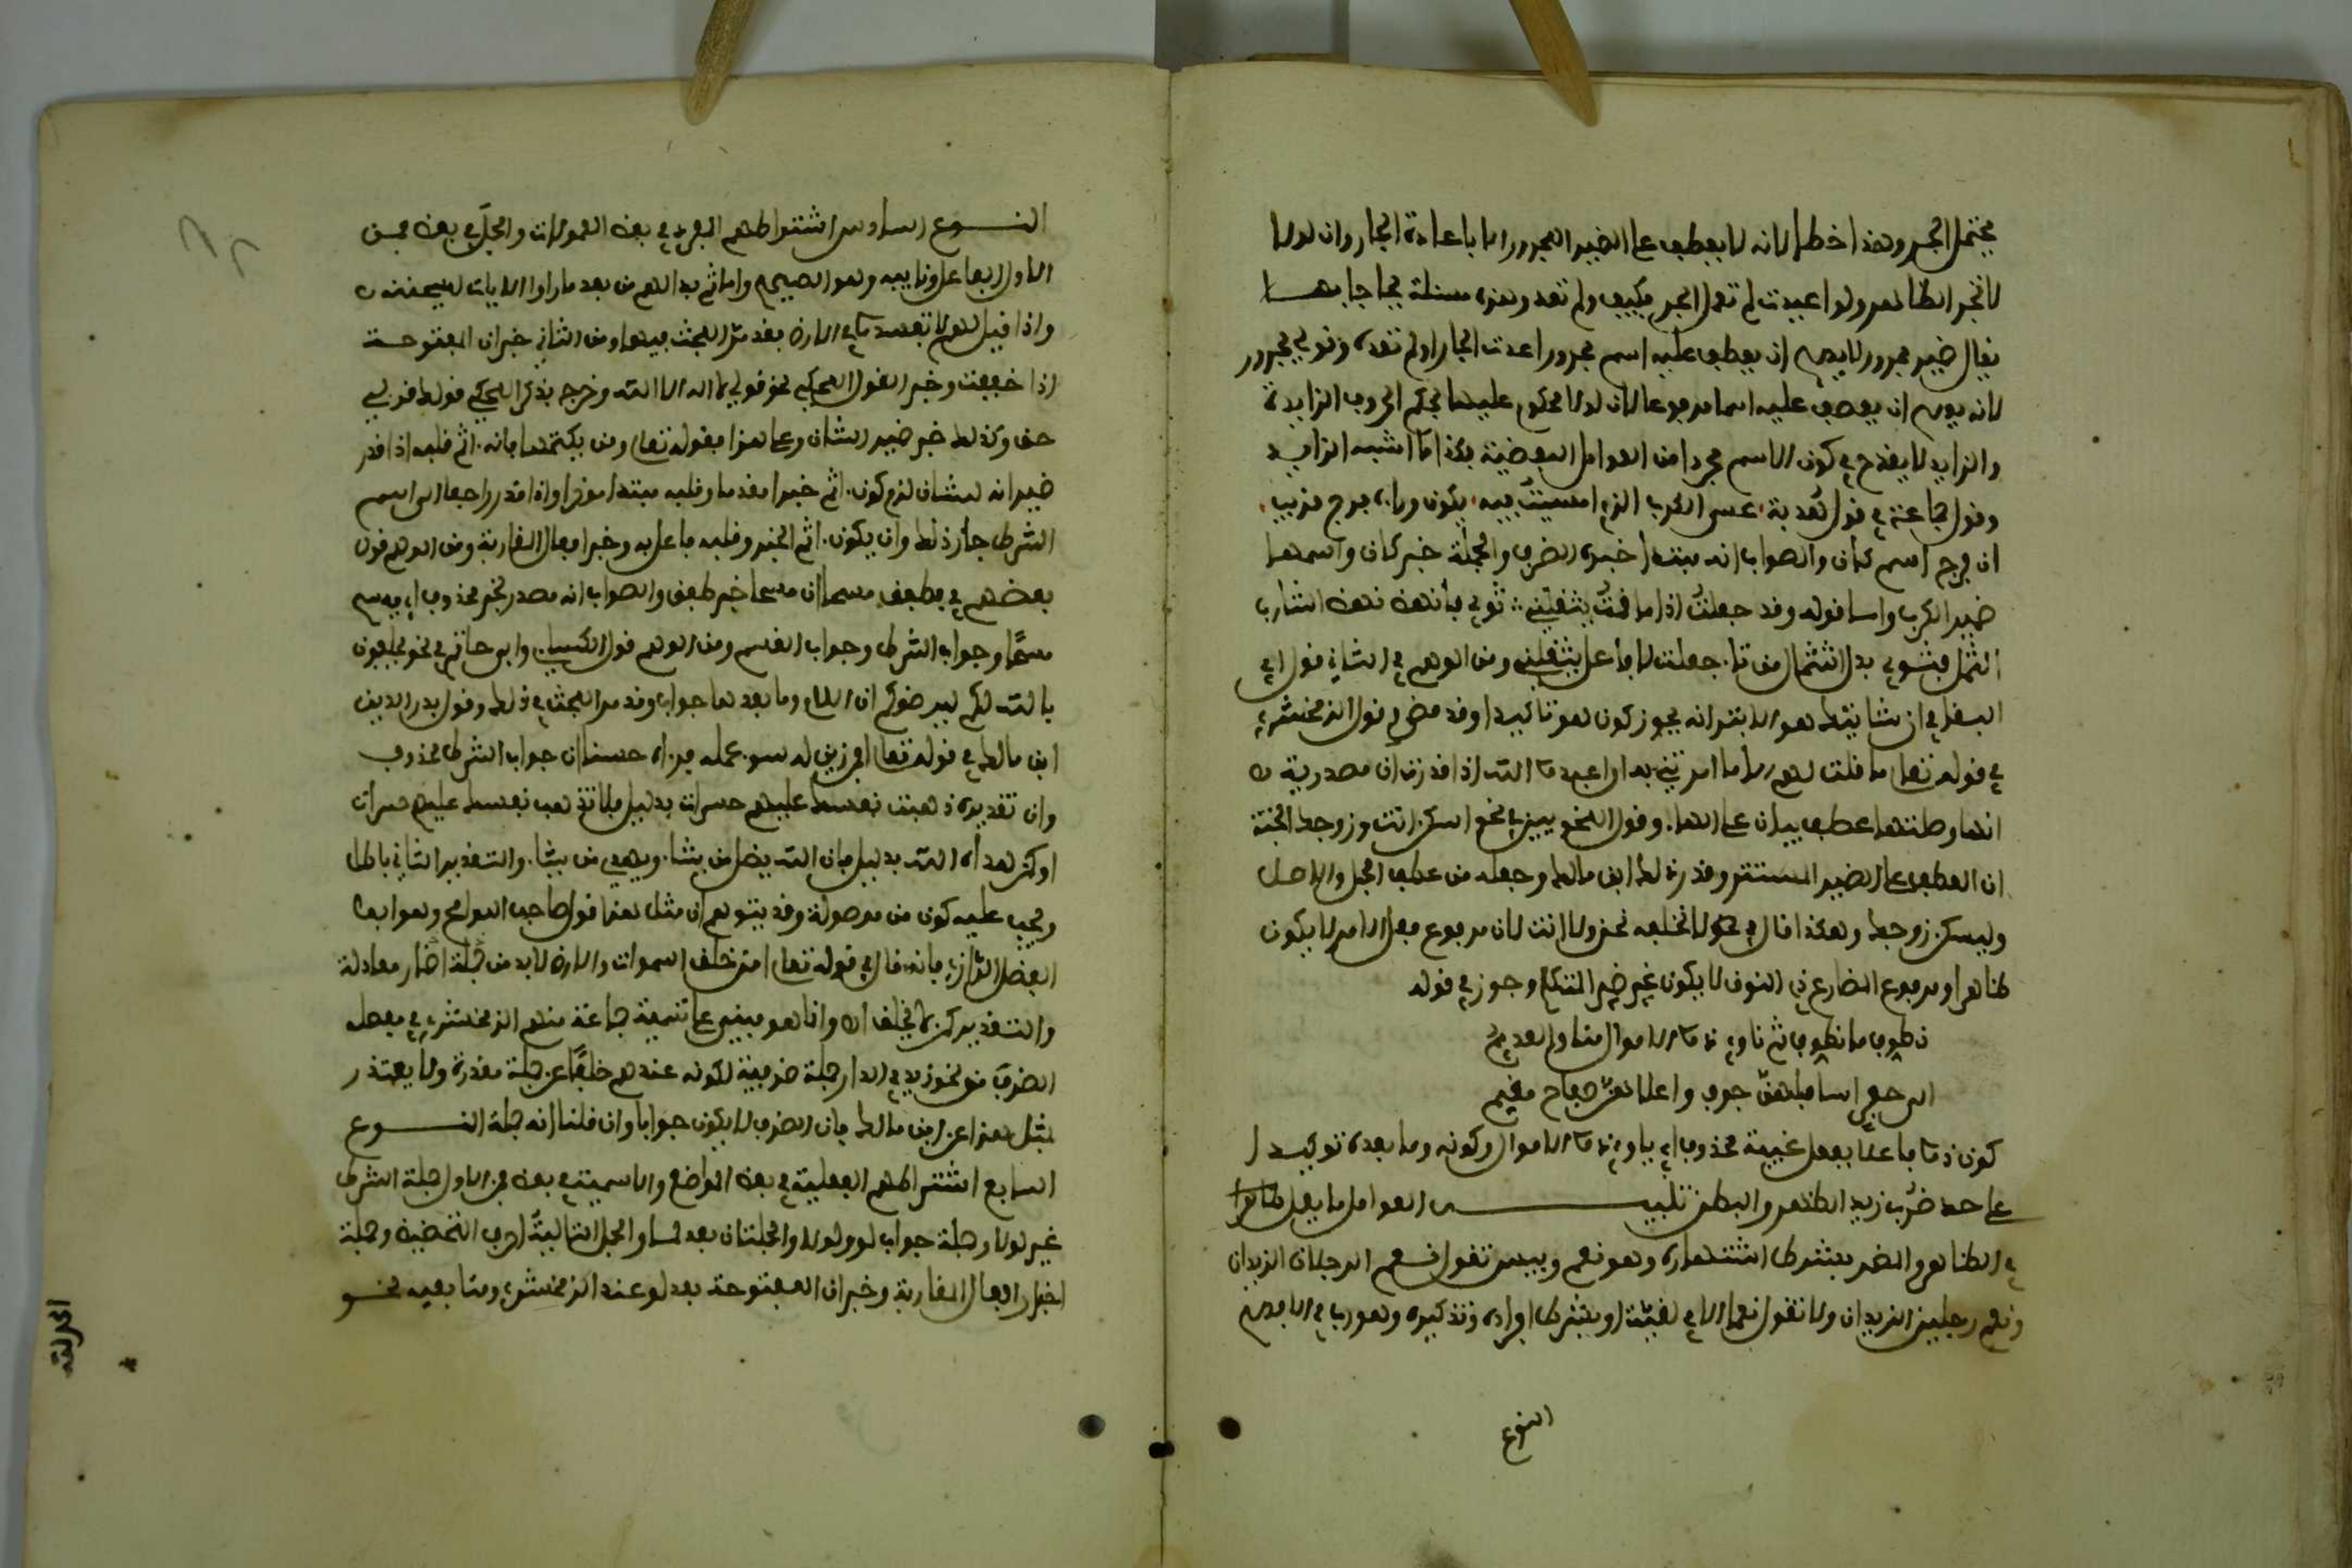 يحتمل الجر وهذا خطا لانه لا يعطف على الضمير المجرور الا باعادة الجار وان لولا
لا تجر الظاهر ولو اعيدت لم تعمل الجر فكيف ولم تعد وهذه مسئلة يحاجا بها
فيقال ضمير مجرور لا يصح ان يعطف عليه اسم مجرور اعدت الجار او لم تعده وقولي مجرور
لانه يصح ان يعطف عليه اسما مرفوعا لان لولا محكوم عليها بحكم الحروف الزايدة
والزايد لا يقدح في كون الاسم مجردا من العوامل اللفظية فكذا ما اشبه الزايد
وقول جماعة في قول هدبة عسى الكرب الذي امسيت فيه يكون وراءه فرج قريب
ان فرج اسم كان والصواب انه مبتدا خبره الظرف والجملة خبر كان واسمها
ضمير الكرب واما قوله وقد جعلت اذا ما قمت يثقلني ثوبي فانهض نهض الشارب
الثمل فثوبي بدل اشتمال من تاء جعلت لا فاعل يثقلني ومن الوهم في الثاني قول ابي
البقا في ان شانئك هو الابتر انه يجوز كون هو تاكيدا وقد مضى وقول الزمخشري
في قوله تعلى ما قلت لهم الا ما امرتني به ان اعبدوا الله اذا قدرت ان مصدرية
انها وصلتها عطف بيان على الهاء وقول النحويين في نحو اسكن انت وزوجك الجنة
ان العطف على الضمير المستتر وقد رد ذلك ابن مالك وجعله من عطف الجمل والاصل
وليسكن زوجك وهكذا قال في نحو لا نخلفه نحن ولا انت لان مرفوع فعل الامر لا يكون
ظاهرا ومرفوع المضارع ذي النون لا يكون غير ضمير المتكلم وجوز في قوله
نطوف ما نطوف ثم ناوي ذووا الاموال منا والعديم
الى حفر اسافلهن جوف واعلاهن صفاح مقيم
كون ذووا فاعلا بفعل غيبة محذوف اي ياوي ذووا الاموال وكونه وما بعده توكيدا
على حد ضرب زيد الظهر والبطن تنبيه من العوامل ما يعمل ظاهرا
في الظاهر والمضمر بشرط استتاره وهو نعم وبيس تقول نعم الرجلان الزيدان
ونعم رجلين الزيدان ولا تقول نعما الا في لغية او بشرط افراده وتذكيره وهو رب في الاصح
النوع
النوع السادس اشتراطهم المفرد في بعض المعمولات والجملة في بعض فمن
الاول الفاعل ونايبه وهو الصحيح واما ثم بدا لهم من بعد ما راوا الايات ليسجننه
واذا قيل لهم لا تفسدوا في الارض فقد مر البحث فيهما ومن الثاني خبر ان المفتوحة
اذا خففت وخبر القول المحكي نحو قولي لا اله الا الله وخرج بذكر المحكي قولك قولي
حق وكذلك خبر ضمير الشان وعلى هذا فقوله تعلى ومن يكتمها فانه اثم قلبه اذا قدر
ضمير انه للشان لزم كون اثم خبرا مقدما وقلبه مبتدا موخرا واذا قدر راجعا الى اسم
الشرط جاز ذلك وان يكون اثم الخبر وقلبه فاعل به وخبر افعال المقاربة ومن الوهم قول
بعضهم في فطفق مسحا ان مسحا خبر طفق والصواب انه مصدر لخبر محذوف اي يمسح
مسحا وجواب الشرط وجواب القسم ومن الوهم قول الكسائي وابي حاتم في نحو يحلفون
بالله لكم ليرضوكم ان اللام وما بعدها جواب وقد مر البحث في ذلك وقول بدر الدين
ابن مالك في قوله تعلى افمن زين له سوء عمله فرءاه حسنا ان جواب الشرط محذوف
وان تقديره ذهبت نفسك عليهم حسرات بدليل فلا تذهب نفسك عليهم حسرات
او كمن هداه الله بدليل فان الله يضل من يشاء ويهدي من يشاء والتقدير الثاني باطل
ويجب عليه كون من موصولة وقد يتوهم ان مثل هذا قول صاحب اللوامح وهو ابو
الفضل الرازي فانه قال في قوله تعلى امن خلق السموات والارض لا بد من جملة اضمار معادلة
والتقدير كمن لا يخلق انه وانما هو مبني على تسمية جماعة منهم الزمخشري في مفصله
الظرف من نحو زيد في الدار جملة ظرفية لكونه عندهم خلفا عن جملة مقدرة ولا يعتذر
بمثل هذا عن ابن مالك فان الظرف لا يكون جوابا وان قلنا انه جملة النوع
السابع اشتراطهم الفعلية في بعض المواضع والاسمية في بعض فمن الاول جملة الشرط
غير لولا وجملة جواب لو ولولا والجملتان بعد لما والجمل التالية احرف التحضيض وجملة
اخبار افعال المقاربة وخبر ان المفتوحة بعد لو عند الزمخشري ومتابعيه نحو
الحمد لله